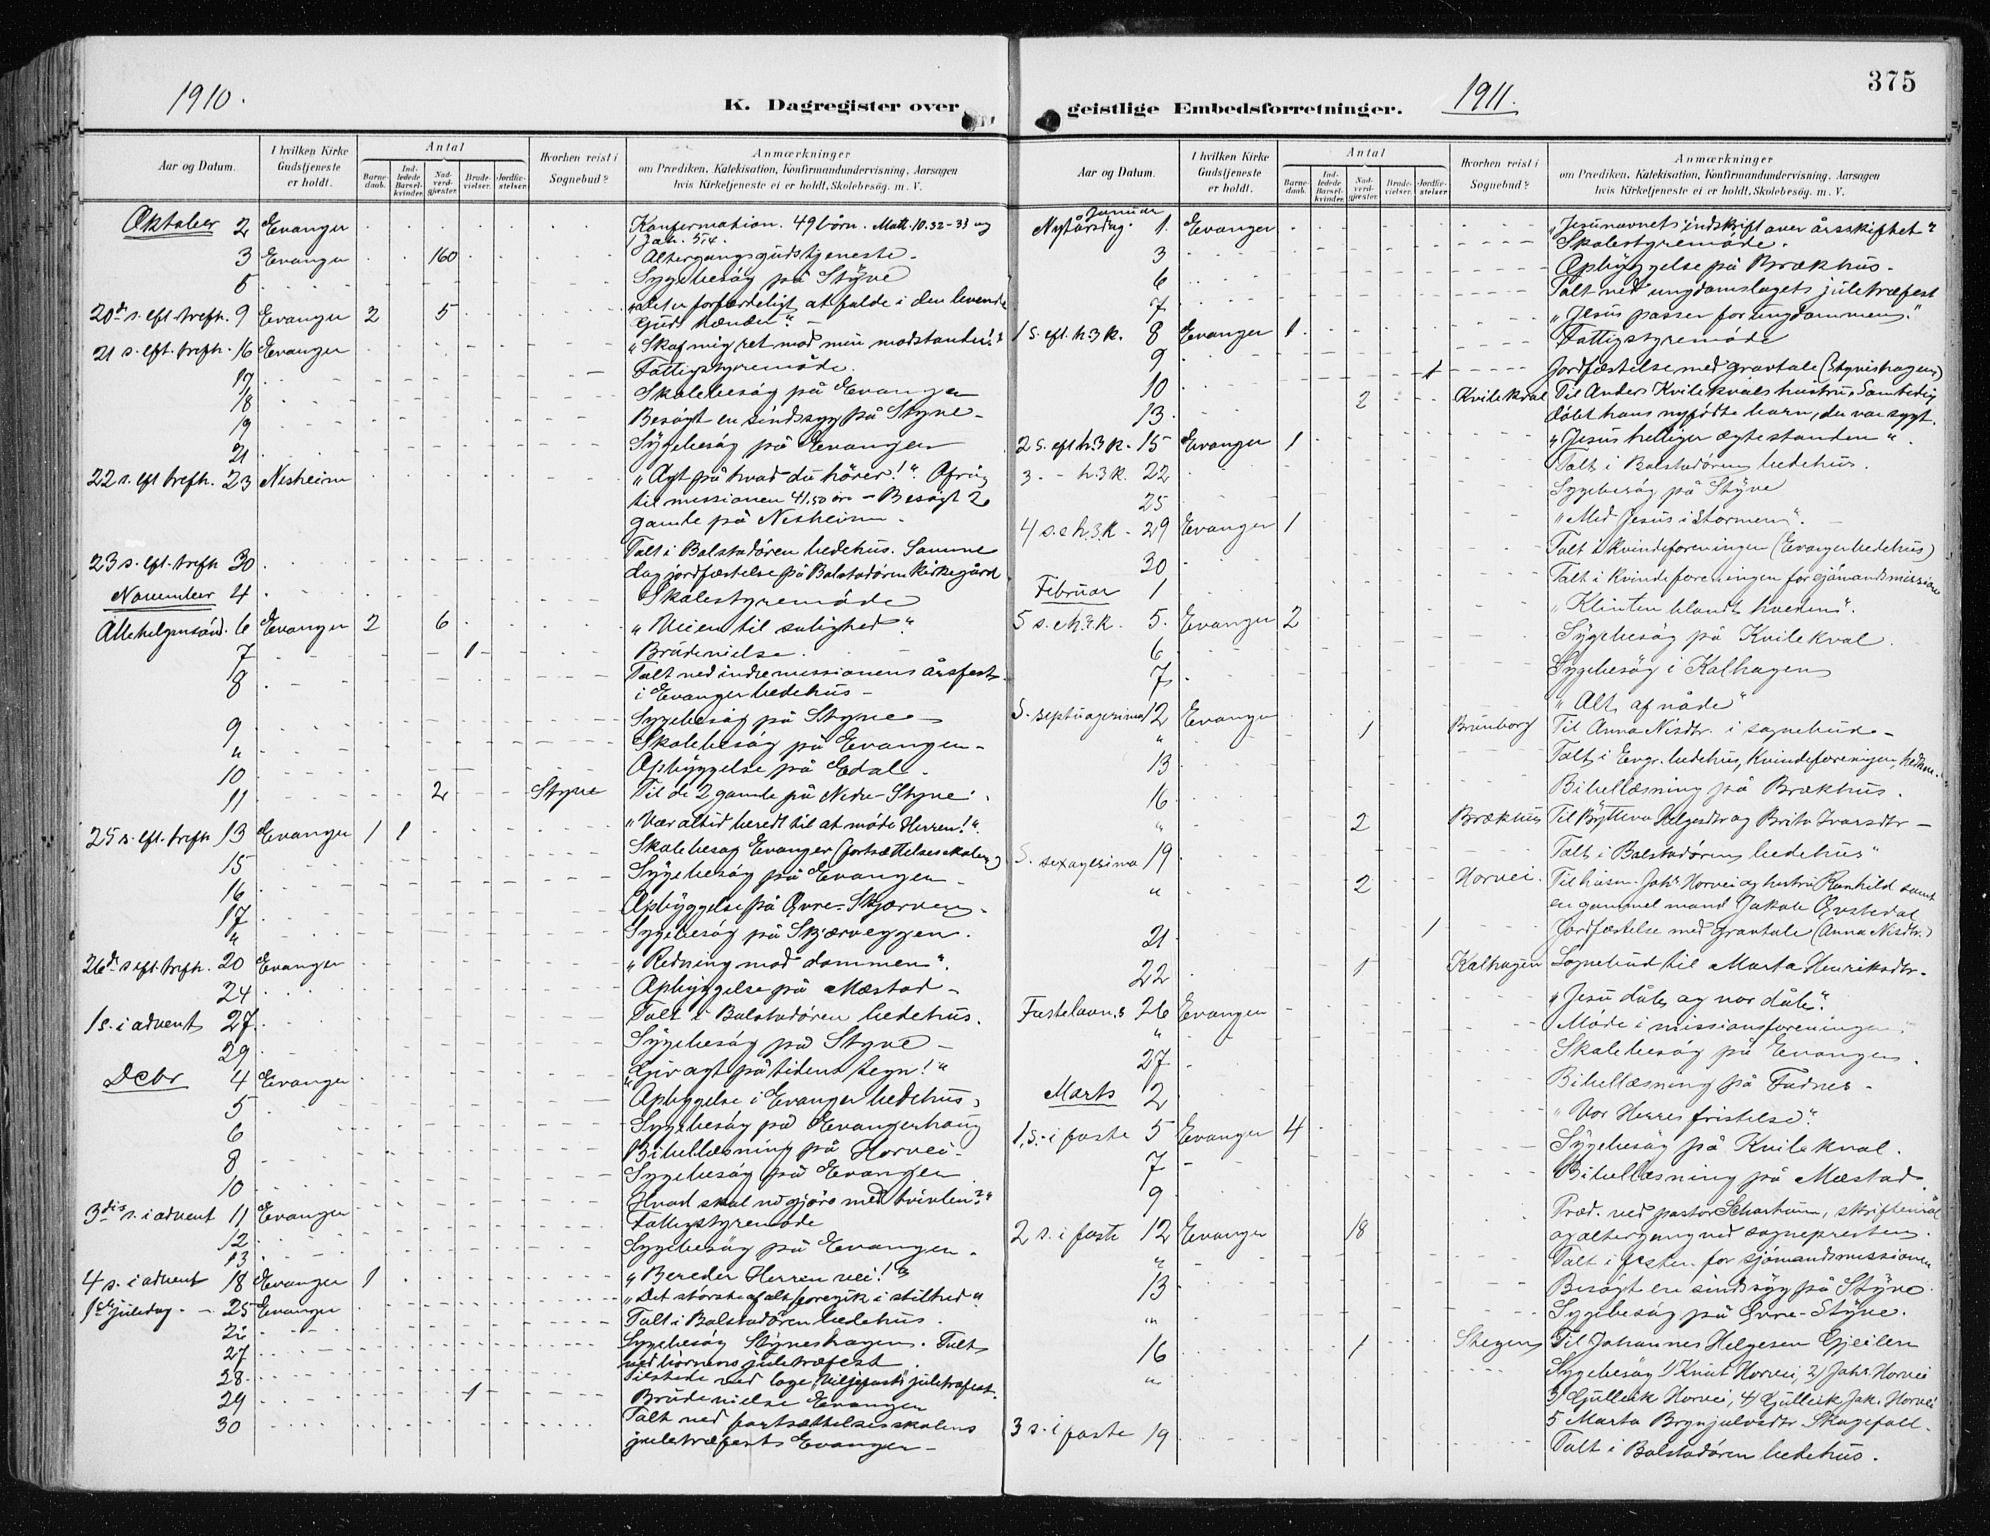 1910.
K. Dagregister over
Aar og Datum.
I hvilken Kirke Gudstjeneste er holdt.
Antal
Barnedaab.
Indledede Barselkvinder.
Nadverdgjæster.
Brudevielser.
Jordfæstelser.
Hvorhen reist i Sognebud?
Anmærkninger
om Prædiken, Katekisation, Konfirmandundervisning, Aarsagen
hvis Kirketjeneste ei er holdt, Skolebesøg. m. V.
Oktober 2 Evanger Konfermation. 49 börn. Matt. 10.32-33 og
1 Joh. 5,4.
3 Evanger 160 Altergangsgudstjeneste.
5 Sygebesög på Styve
20de s. eft. trefh. 9 Evanger 2 5 "Det er forfærdeligt at falde i den levende
Guds hænder".
21 s. eft. trefh. 16 Evanger "Skaf mig ret mod min modstander!"
17 Fattigstyremöde.
18 Skolebesög på Evanger
19 Besögt en sindssyg på Styve
21 Sygebesög på Evanger
22 s. eft. trefh. 23 Nesheim "Agt på hvad du hörer!". Ofring
til missionen 41.50 öre - Besögt 2
gamle på Nesheim.
23 s. eft. trefh 30 Talt i Bolstadören bedehus. Samme
dag jordfæstelse på Bolstadören kirkegård
November 4 Skolestyremöde
Allehelgensönd. 6 Evanger 2 6 "Veien til salighed".
7 1 Brudevielse.
8 Talt ved indremissionens årsfest
i Evanger bedehus
9 Sygebesög på Styve
" Skolebesög på Evanger
10 Opbyggelse på Edal.
11 2 Styve Til de 2 gamle på Nedre-Styve.
25 s. eft. trefh 13 Evanger 1 1 "Vær altid beredt til at möde Herren!".
15 Skolebesög Evanger (fortsættelsesskolen)
16 Sygebesög på Evanger
17 Opbyggelse på Övre-Skjerven.
" Sygebesög på Skjerveggen.
26de s. eft. trefh. 20 Evanger "Redning mod dommen".
24 Opbyggelse på Mæstad
1 s. i advent 27 Talt i Bolstadören bedehus.
29 Sygebesög på Styve
Decbr 4 Evanger "Giv agt på tidens tegn!"
5 Opbyggelse i Evanger bedehus.
6 Sygebesög på Evangerhaug
8 Bibellæsning på Horvei.
10 Sygebesög på Evanger
3die s. i advent 11 Evanger Hvad skal vi gjöre med tvivlen?"
12 Fattigstyremöde
13 Sygebesög på Evanger.
4 s. i advent 18 Evanger 1 "Bereder Herren vei!"
1ste juledag. 25 Evanger "Det störste af alt foregik i stilhed".
26 Talt i Bolstadören bedehus.
27 Sygebesög Styveshagen. Talt
ved börnenes juletræfest.
28 Tilstede ved loge juletræfest.
29 1 Brudevielse Evanger
30 Talt ved fortsættelsesskolens
juletræfest Evanger
375
geistlige Embedsforretninger.
1911.
Aar og Datum.
I hvilken Kirke Gudstjeneste er holdt.
Antal
Barnedaab.
Indledede Barselkvinder.
Nadverdgjæster.
Brudevielser.
Jordfæstelser.
Hvorhen reist i Sognebud?
Anmærkninger
om Prædiken, Katekisation, Konfirmandundervisning, Aarsagen
hvis Kirketjeneste ei er holdt, Skolebesøg. m. V.
Januar
Nytårsdag. 1. Evanger "Jesunavnets indskrift over årsskiftet"
3 Skolestyremöde.
6 Opbyggelse på Brækhus.
7 Talt ved ungdomslagets juletræfest
1 s. eft. h.3 k. 8 Evanger 1 "Jesus passer for ungdommen."
9 Fattigstyremöde
10 1 Jordfæstelse med gravtale (Styveshagen)
13 2 Kvilekval Til Anders Kvilekvals hustru, Samtidig
döbt hans nyfödte barn, der var sygt.
2 s. eft h.3 k. 15 Evanger 1 "Jesus helliger ægtestanden".
3. - h.3 k. 22 Talt i Bolstadören bedehus.
25 Sygebesög på Styve
4 s. e h. 3 k. 29 Evanger 1 "Med Jesus i stormen".
30 Talt i kvindeforeningen (Evanger bedehus)
Februar 1 Talt i Kvindeforeningen for sjömandsmissionen
5 s. e h. 3. k. 5. Evanger 2 "Klinten blandt hveden".
6 Sygebesög på Kvilekval.
7 Sygebesög i Kalhagen
S. septuagesima 12 Evanger "Alt af nåde"
" 1 Brunborg Til Anna Nilsdtr. i sognebud
13 Talt i Evgr. bedehus, Kvindeforeningen,
16 Bibellæsning på Brækhus.
" 2 Brækhus Til Helgesdtr og Brita Ivarsdtr
S. sexagesima 19 Talt i Bolstadören bedehus"
" 2 Horvei. Til husm. Joh. Horvei og hustru Ranhild samt
en gammel mand Jakob Övstedal
21 1 Jordfæstelse med gravtale (Anna Nilsdtr.)
22 1 Kalhagen Sognebud til Marta Henriksdtr.
Fastelavns 26 Evanger "Jesu dåb og vor dåb".
" Möde i missionsforeningen.
27 Skolebesög på Evanger.
Marts 2 Bibellæsning på Fadnes.
1. s. i faste 5 Evanger 4 "Vor Herres fristelse".
7 Sygebesög på Kvilekval.
9 Bibellæsning på Mæstad.
2 s. i faste 12 Evanger 18 Præd. ved pastor Scharhum, skriftemål
og altergang ved sognepresten.
" Talt i festen for sjömandsmissionen
13 Besögt en sindssyg på Styve.
" Sygebesög på Övre-Styve.
16 1 Stegen Til Johannes Helgesen Gjeilen
" Sygebesög 1) Knut Horvei, 2) Joh. Horvei
3) Gullek Horvei, 4) Gullek Jak. Horvei
5 Marta Brynjulvsdtr Skogefald.
3 s. i faste 19 Talt i Bolstadören bedehus.